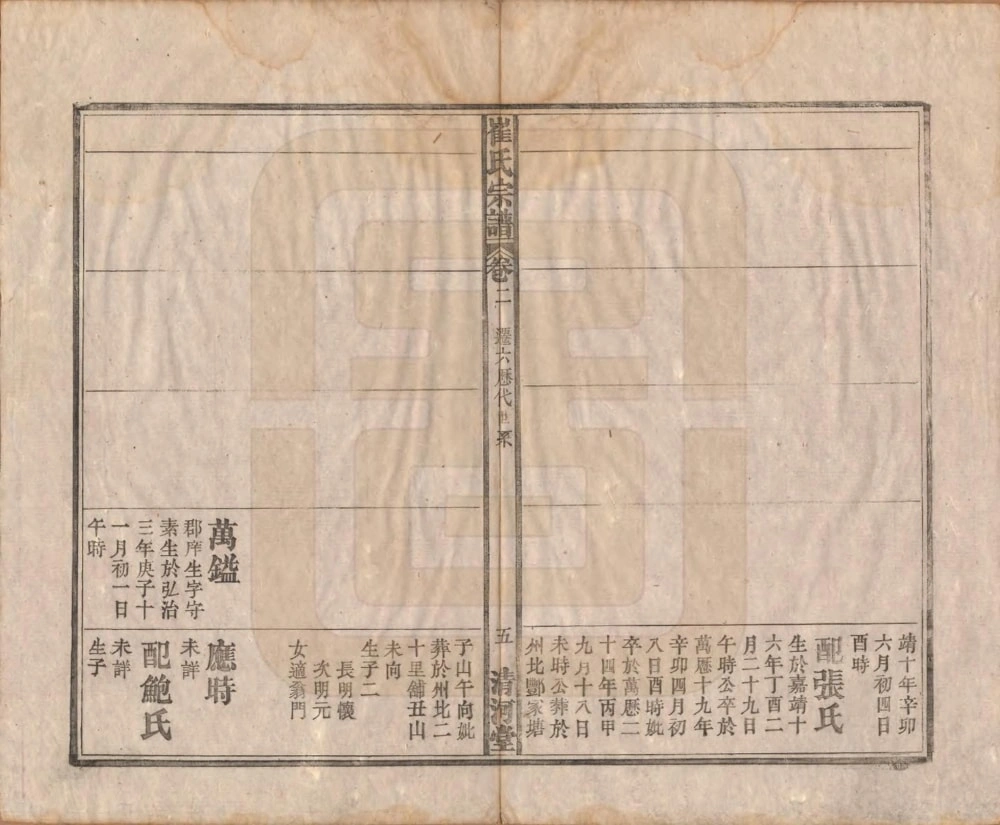 靖十年辛卯
六月初四日
酉時
配張氏
生於嘉靖十
六年丁酉二
月二十九日
午時公卒於
萬曆十九年
辛卯四月初
八日酉時妣
卒於萬曆二
十四年丙申
九月十八日
未時公葬於
州北酆家塘
崔氏宗譜
卷二
遷六歷代世系
五
清河堂
子山午向妣
葬於州北二
十里舖丑山
未向
生子二
長明懷
次明元
女適翁門
萬鎰
郡庠生字守
素生於弘治
三年庚子十
一月初一日
午時
應時
未詳
配鮑氏
未詳
生子